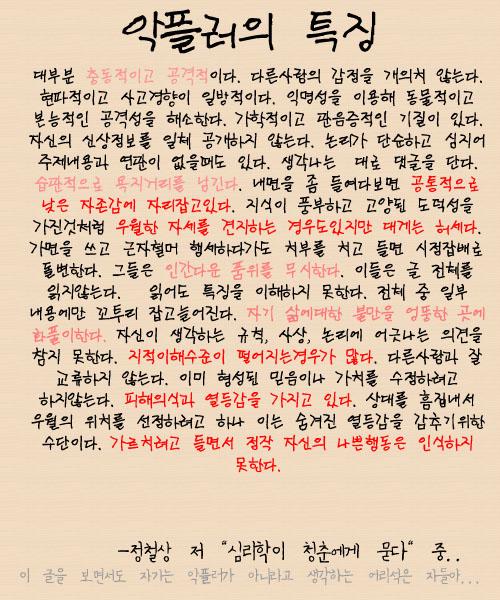 악플러의 특징
대부분 충동적이고 공격적이다. 다른사람의 감정을 개의치 않는다.
현파적이고 사고경향이 일방적이다. 익명성을 이용해 동물적이고
본능적인 공격성을 해소한다. 가학적이고 관음증적인 기질이 있다.
자신의 신상정보를 일체 공개하지 않는다. 논리가 단순하고 심지어
주제내용과 연관이 없을때도 있다. 생각나는 대로 댓글을 단다.
습관적으로 욕지거리를 남긴다. 내면을 좀 들여다보면 공통적으로
낮은 자존감에 자리잡고있다. 지식이 풍부하고 고양된 도덕성을
가진것처럼 우월한 자세를 견지하는 경우도있지만 대게는 허세다.
가면을 쓰고 근자헐머 행세하다가도 치부를 치고 들면 시정잡배로
돌변한다. 그들은 인간다운 품위를 무시한다. 이들은 글 전체를
읽지않는다. 읽어도 특징을 이해하지 못한다. 전체 중 일부
내용에만 꼬투리 잡고늘어진다. 자기 삶에대한 불만을 엉뚱한 곳에
화풀이한다. 자신이 생각하는 규칙, 사상, 논리에 어긋나는 의견을
참지 못한다. 지적이해수준이 떨어지는경우가 많다. 다른사람과 잘
교류하지 않는다. 이미 형성된 믿음이나 가치를 수정하려고
하지않는다. 피해의식과 열등감을 가지고 있다. 상대를 흠집내서
우월의 위치를 선정하려고 하나 이는 숨겨진 열등감을 감추기위한
수단이다. 가르쳐려고 들면서 정작 자신의 나쁜행동은 인식하지
못한다.
-정철상 저 "심리학이 청춘에게 묻다" 중..
이 글을 보면서도 자기는 악플러가 아니라고 생각하는 어리석은 자들아...